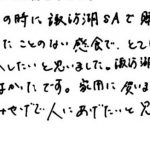 の時に諏訪湖SAで購
たことのない感食で、とて
入したいと思いました。諏訪湖
なかったです。家用に買いま
みやげで人にあげたいと思